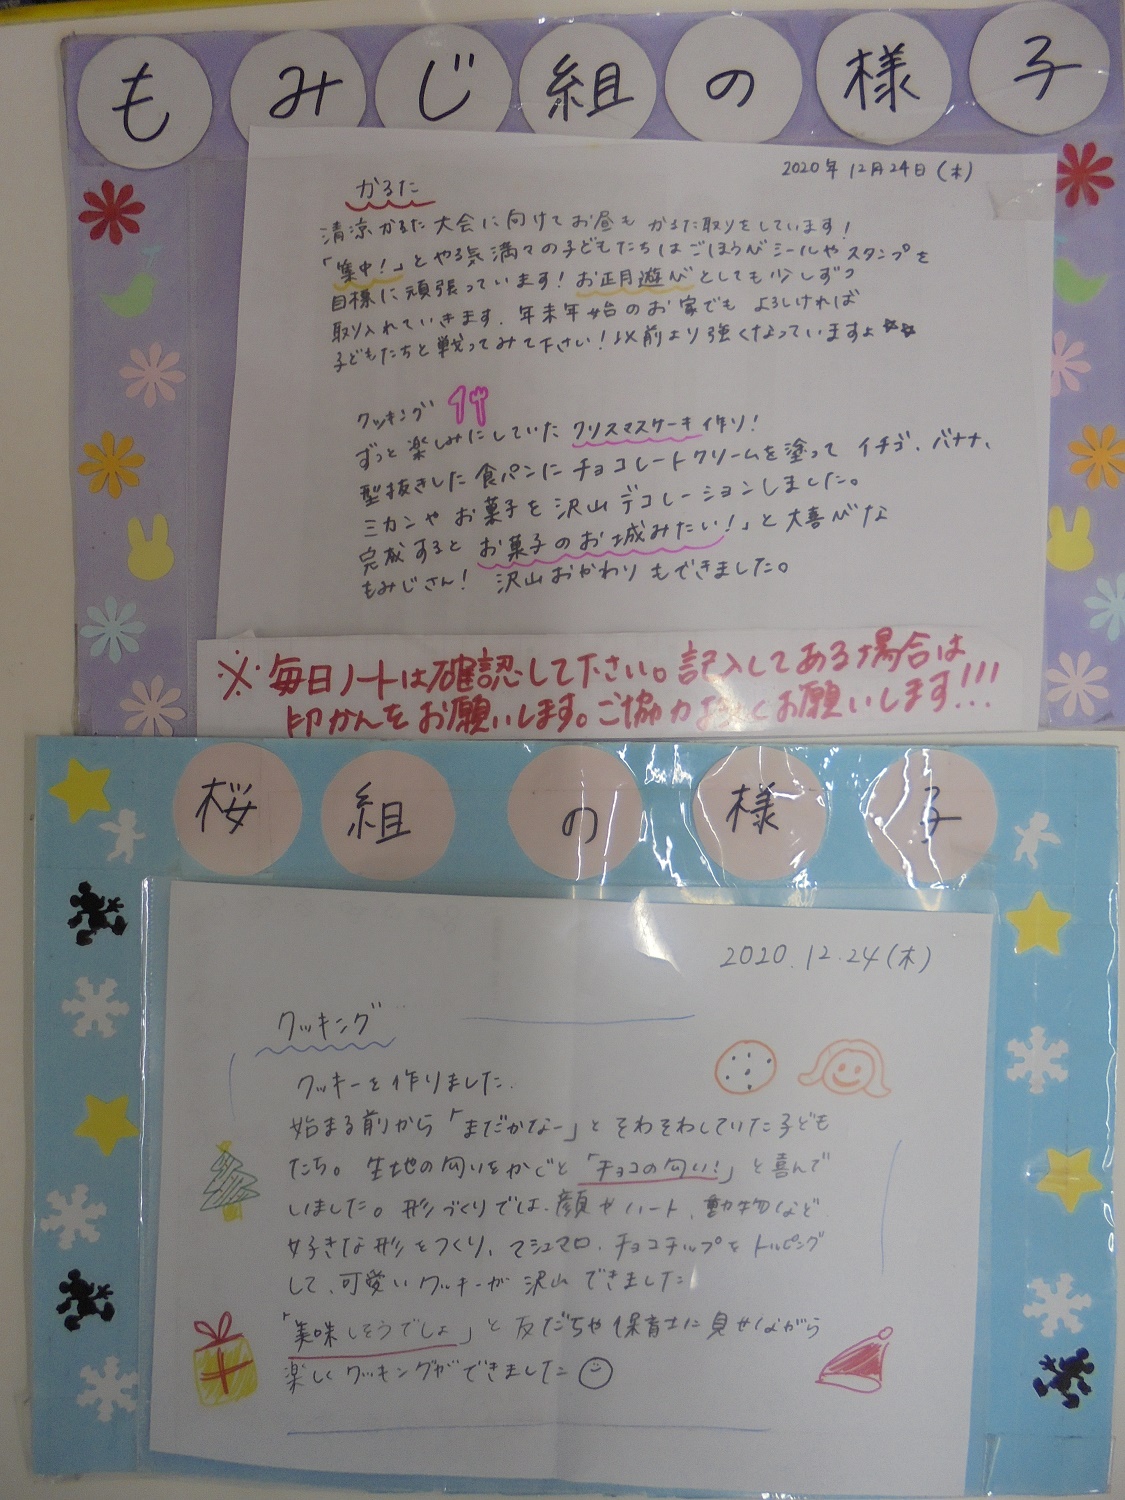 もみじ組の様子
2020年12月24日(木)
かるた
清涼かるた大会に向けてお昼もかるた取りをしています!
「集中!」とやる気満々の子どもたちはごほうびシールやスタンプを
目標に頑張っています!お正月遊びとしても少しずつ
取り入れていきます。年末年始のお家でもよろしければ
子どもたちと戦ってみて下さい!以前より強くなっていますよ☆☆
クッキング
ずっと楽しみにしていたクリスマスケーキ作り!
型抜きした食パンにチョコレートクリームを塗ってイチゴ、バナナ、
ミカンやお菓子を沢山デコレーションしました。
完成するとお菓子のお城みたい!」と大喜びな
もみじさん! 沢山おかわりもできました。
※毎日ノートは確認して下さい。記入してある場合は
印かんをお願いします。ご協力強くお願いします!!!
桜組の様子
2020.12.24(木)
クッキング
クッキーを作りました。
始まる前から「まだかなー」とそわそわしていた子ども
たち。生地の匂いをかぐと「チョコの匂い!」と喜んで
いました。形づくりでは、顔やハート、動物など
好きな形をつくり、マシュマロ、チョコチップをトッピング
して、可愛いクッキーが沢山できました
「美味しそうでしょ」と友だちや保育士に見せながら
楽しくクッキングができました